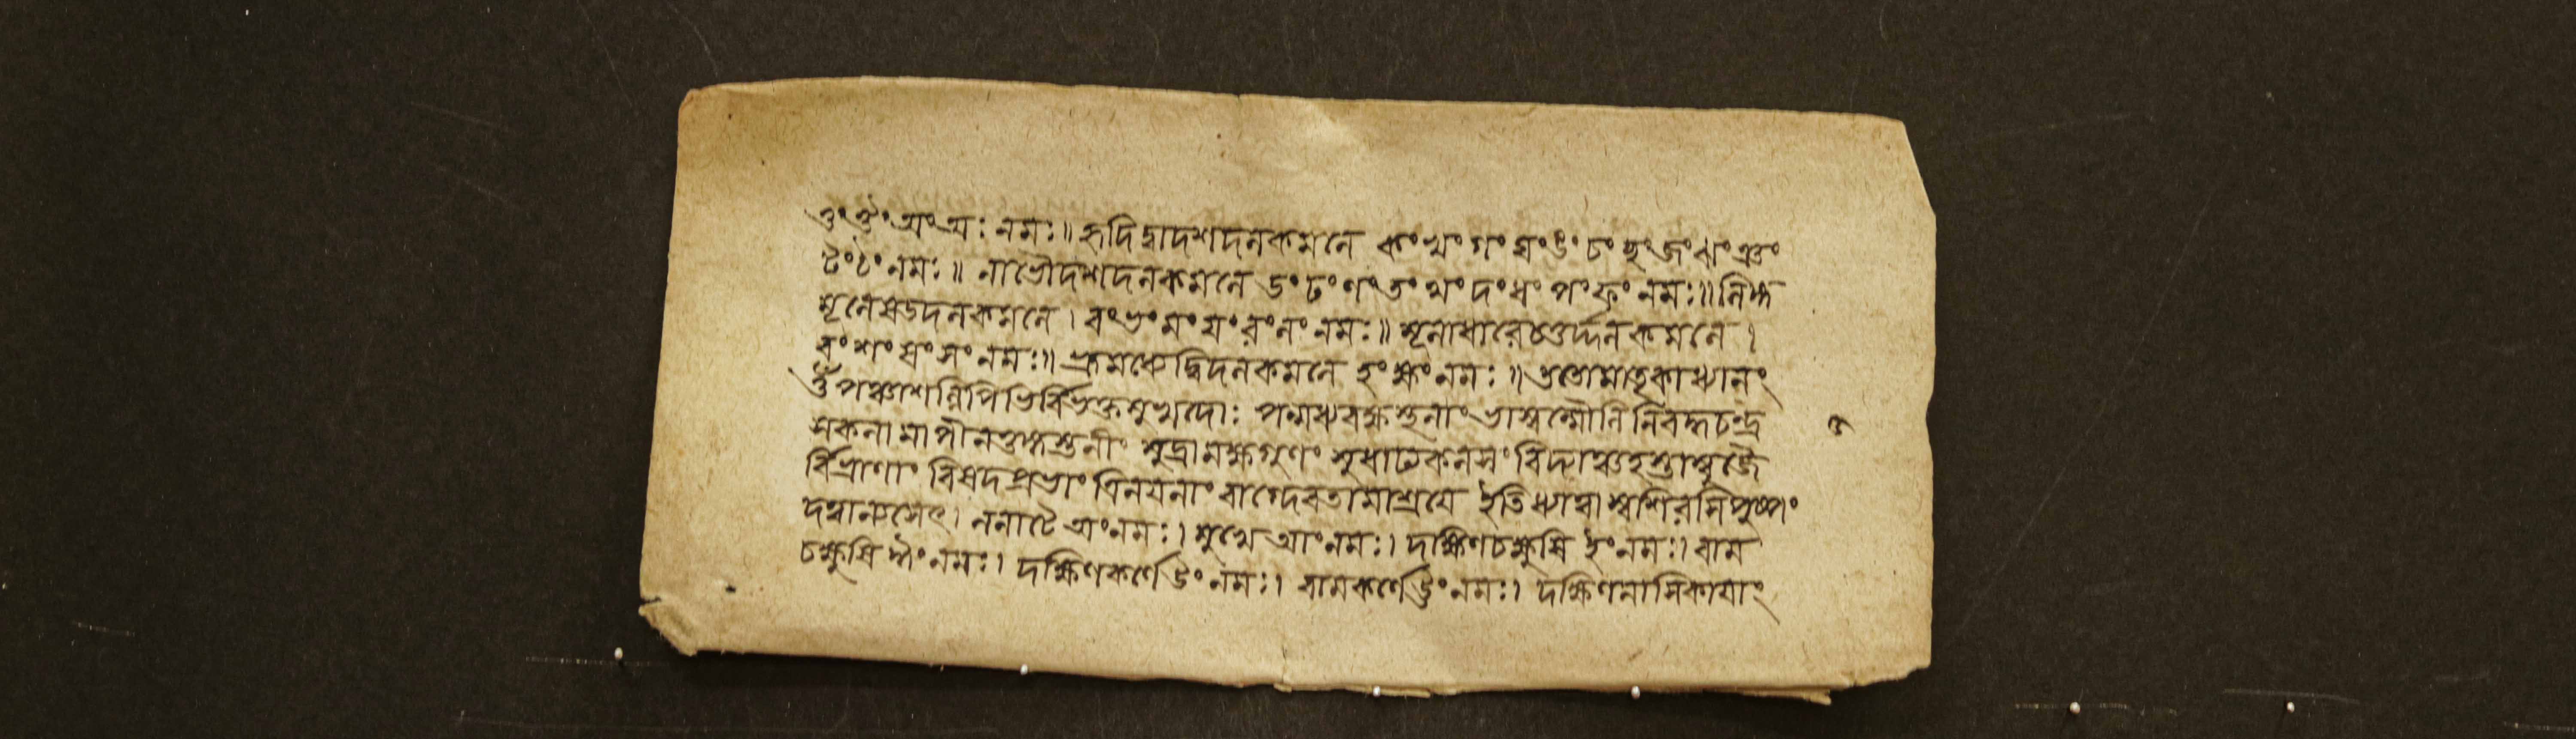 ওং ঔং অং অঃ নমঃ॥ হৃদি দ্বাদশদলকমলে কং খং গং ঘং ঙং চং ছং জং ঝং ঞং
টং ঠং নমঃ॥ নাভৌ দশদলকমলে ডং ঢং ণং তং থং দং ধং পং ফং নমঃ॥ লিঙ্গ
মূলে ষড্দলকমলে। বং ভং মং যং রং লং নমঃ॥ মূলাধারে চতুর্দ্দলকমলে।
বং শং ষং সং নমঃ॥ ভ্রূমধ্যে দ্বিদলকমলে হং ক্ষং নমঃ॥ ততো মাতৃকাধ্যানং
ওঁ পঞ্চাশল্লিপিভির্বিভক্তমুখদোঃ পন্মধ্যবক্ষস্থলাং ভাস্বন্মৌলিনিবদ্ধচন্দ্র
সকলামাপীনতুঙ্গস্তনীং মুদ্রামক্ষগুণং সুধাঢ্যকলসং বিদ্যাঞ্চ হস্তাম্বুজৈ
র্বিভ্রাণাং বিষদপ্রভাং ত্রিনয়নাং বাগ্দেবতামাশ্রয়ে ইতি ধ্যাত্বা স্বশিরসি পুষ্পং
দত্বা ন্যসেৎ। ললাটে অং নমঃ। মুখে আং নমঃ। দক্ষিণচক্ষুষি ইং নমঃ। বাম
চক্ষুষি ঈং নমঃ। দক্ষিণকর্ণে উং নমঃ। বামকর্ণে ঊং নমঃ। দক্ষিণনাসিকায়াং